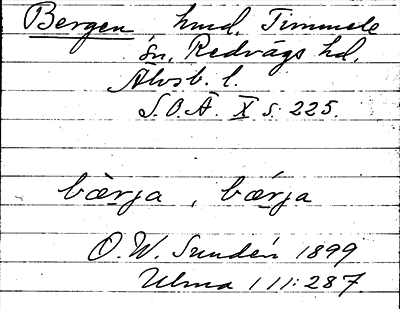 Bergen hmd. Timmele
sn. Redvägs hd.
Älvsb. l.
S.O.Ä. X s. 225.
bærja, bærja
O. W. Sundén 1899
Ulma 111:287.